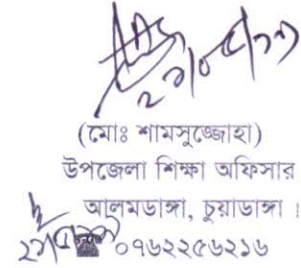 (মোঃ শামসুজ্জোহা)
উপজেলা শিক্ষা অফিসার
আলমডাঙ্গা, চুয়াডাঙ্গা ।
০৭৬২২৫৬২১৬